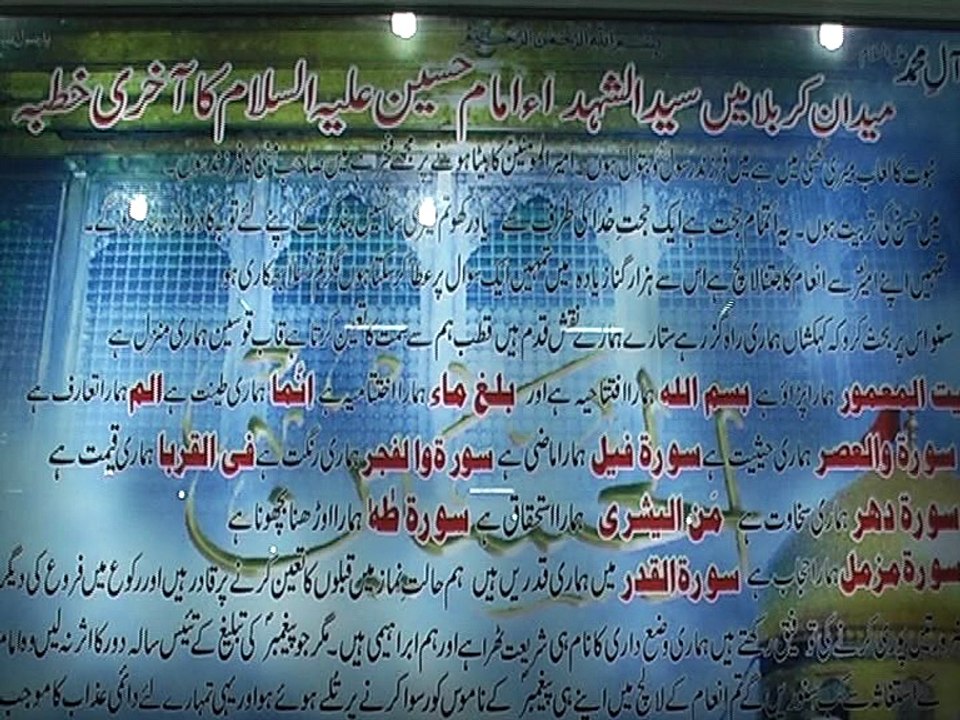 بسم اللہ الرحمن الرحیم
آل محمدؑ
میدان کربلا میں سید الشہداء امام حسین علیہ السلام کا آخری خطبہ
نبوت کا لعاب میری گھٹی میں ہے میں فرزند رسولؐ و بتولؑ ہوں۔ امیر المومنینؑ کا بیٹا ہونے پر مجھے فخر ہے میں صاحب
میں حسنؑ کی تربیت ہوں۔ یہ اتمام حجت ہے ایک حجت خدا کی طرف سے یاد رکھو تم میری سانسیں بند کر کے اپنے لئے توبہ کا دروازہ
تمہیں اپنے امیر سے انعام کا جتنا لالچ ہے اس سے ہزار گنا زیادہ میں تمہیں ایک سوال پر عطا کر سکتا ہوں مگر تم سلا بھکاری ہو
سنو اس پر بحث کرو کہ کہکشاں ہماری راہ گزر ہے ستارے ہمارے نقش قدم ہیں قطب ہم سے سمت کا تعین کرتا ہے قاب قوسین ہماری منزل ہے
بیت المعمور ہمارا پڑاؤ ہے بسم اللہ ہمارا افتتاحیہ ہے اور بلغ ماء ہمارا اختتامیہ ہے انّما ہماری طینت ہے الم ہمارا تعارف ہے
سورۃ والعصر ہماری حیثیت ہے سورۃ فیل ہمارا ماضی ہے سورۃ والفجر ہماری رنگت ہے فی القربا ہماری قیمت ہے
سورۃ دھر ہماری سخاوت ہے من الیشری ہمارا استحقاق ہے سورۃ طٰہٰ ہمارا اوڑھنا بچھونا ہے
سورۃ مزمل ہمارا حجاب ہے سورۃ القدر میں ہماری قدریں ہیں ہم حالت نماز میں قبلوں کا تعین کرنے پر قادر ہیں اور رکوع میں فروع کی دیگر
پوری کرنے کی توفیق رکھتے ہیں ہماری وضع داری کا نام ہی شریعت ٹھہرا ہے اور ہم ابراہیمی ہیں۔ مگر جو پیغمبرؐ کی تبلیغ کے تئیس سالہ دور کا اثر نہ لیں وہ امام
کے استغاثہ سے کب سنوریں گے تم انعام کے لالچ میں اپنے ہی پیغمبرؐ کے ناموس کو رسوا کرنے پر تلے ہوئے ہو اور یہی تمہارے لئے دائمی عذاب کا موجب